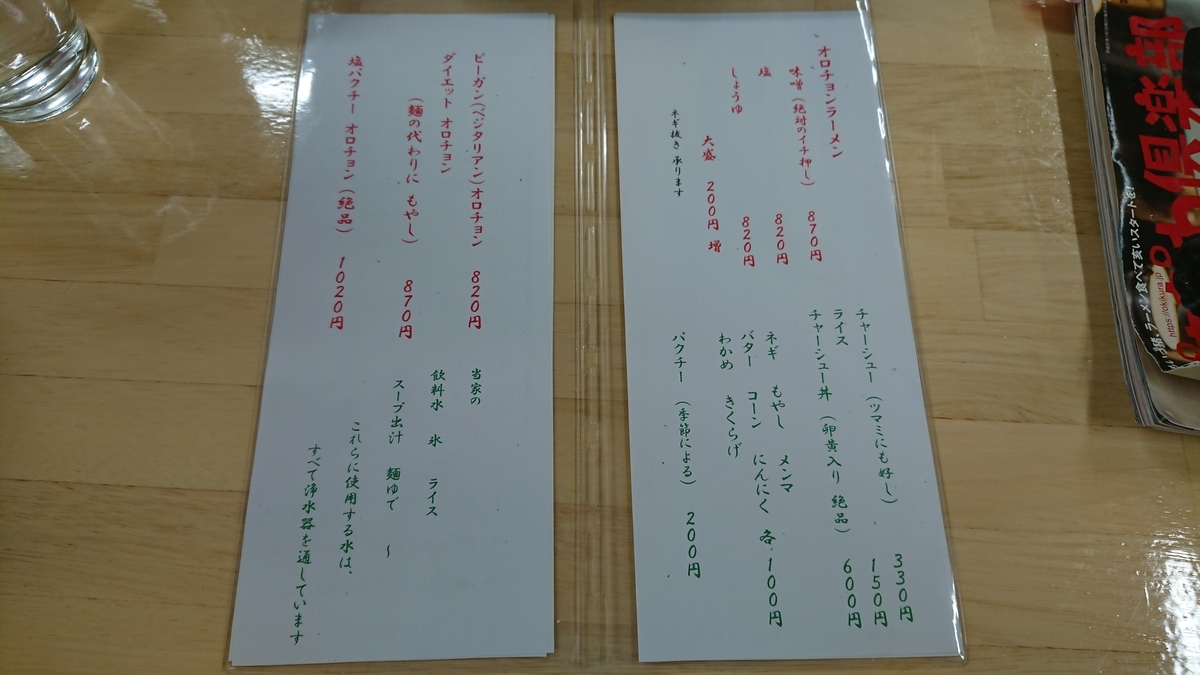 オロチョンラーメン
味噌(絶対のイチ押し) 870円
塩 820円
しょうゆ 820円
大盛 200円 増
ネギ抜き 承ります
チャーシュー (ツマミにも好し) 330円
ライス 150円
チャーシュー丼 (卵黄入り 絶品) 600円
ネギ もやし メンマ
バター コーン にんにく 各100円
わかめ きくらげ
パクチー (季節による) 200円
ビーガン(ベジタリアン)オロチョン 820円
ダイエット オロチョン
(麺の代わりに もやし) 870円
塩パクチー オロチョン(絶品) 1020円
当家の
飲料水 氷 ライス
スープ出汁 麺ゆで 〜
これらに使用する水は、
すべて浄水器を通しています
倶楽部
ラーメン食べて玄いスタートを!
https://okikura.jp